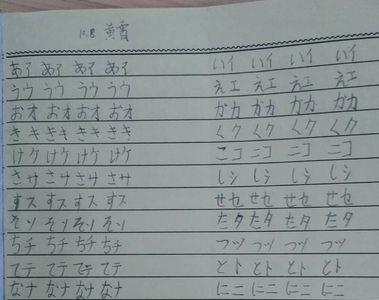 10.8 黄霄
あア あア あア あア いイ いイ いイ いイ
うウ うウ うウ うウ えエ えエ えエ えエ
おオ おオ おオ おオ かカ かカ かカ かカ
きキ きキ きキ きキ くク くク くク くク
けケ けケ けケ けケ こコ こコ こコ こコ
さサ さサ さサ さサ しシ しシ しシ しシ
すス すス すス すス せセ せセ せセ せセ
そソ そソ そソ そソ たタ たタ たタ たタ
ちチ ちチ ちチ ちチ つツ つツ つツ つツ
てテ てテ てテ てテ とト とト とト とト
なナ なナ なナ なナ にニ にニ にニ にニ